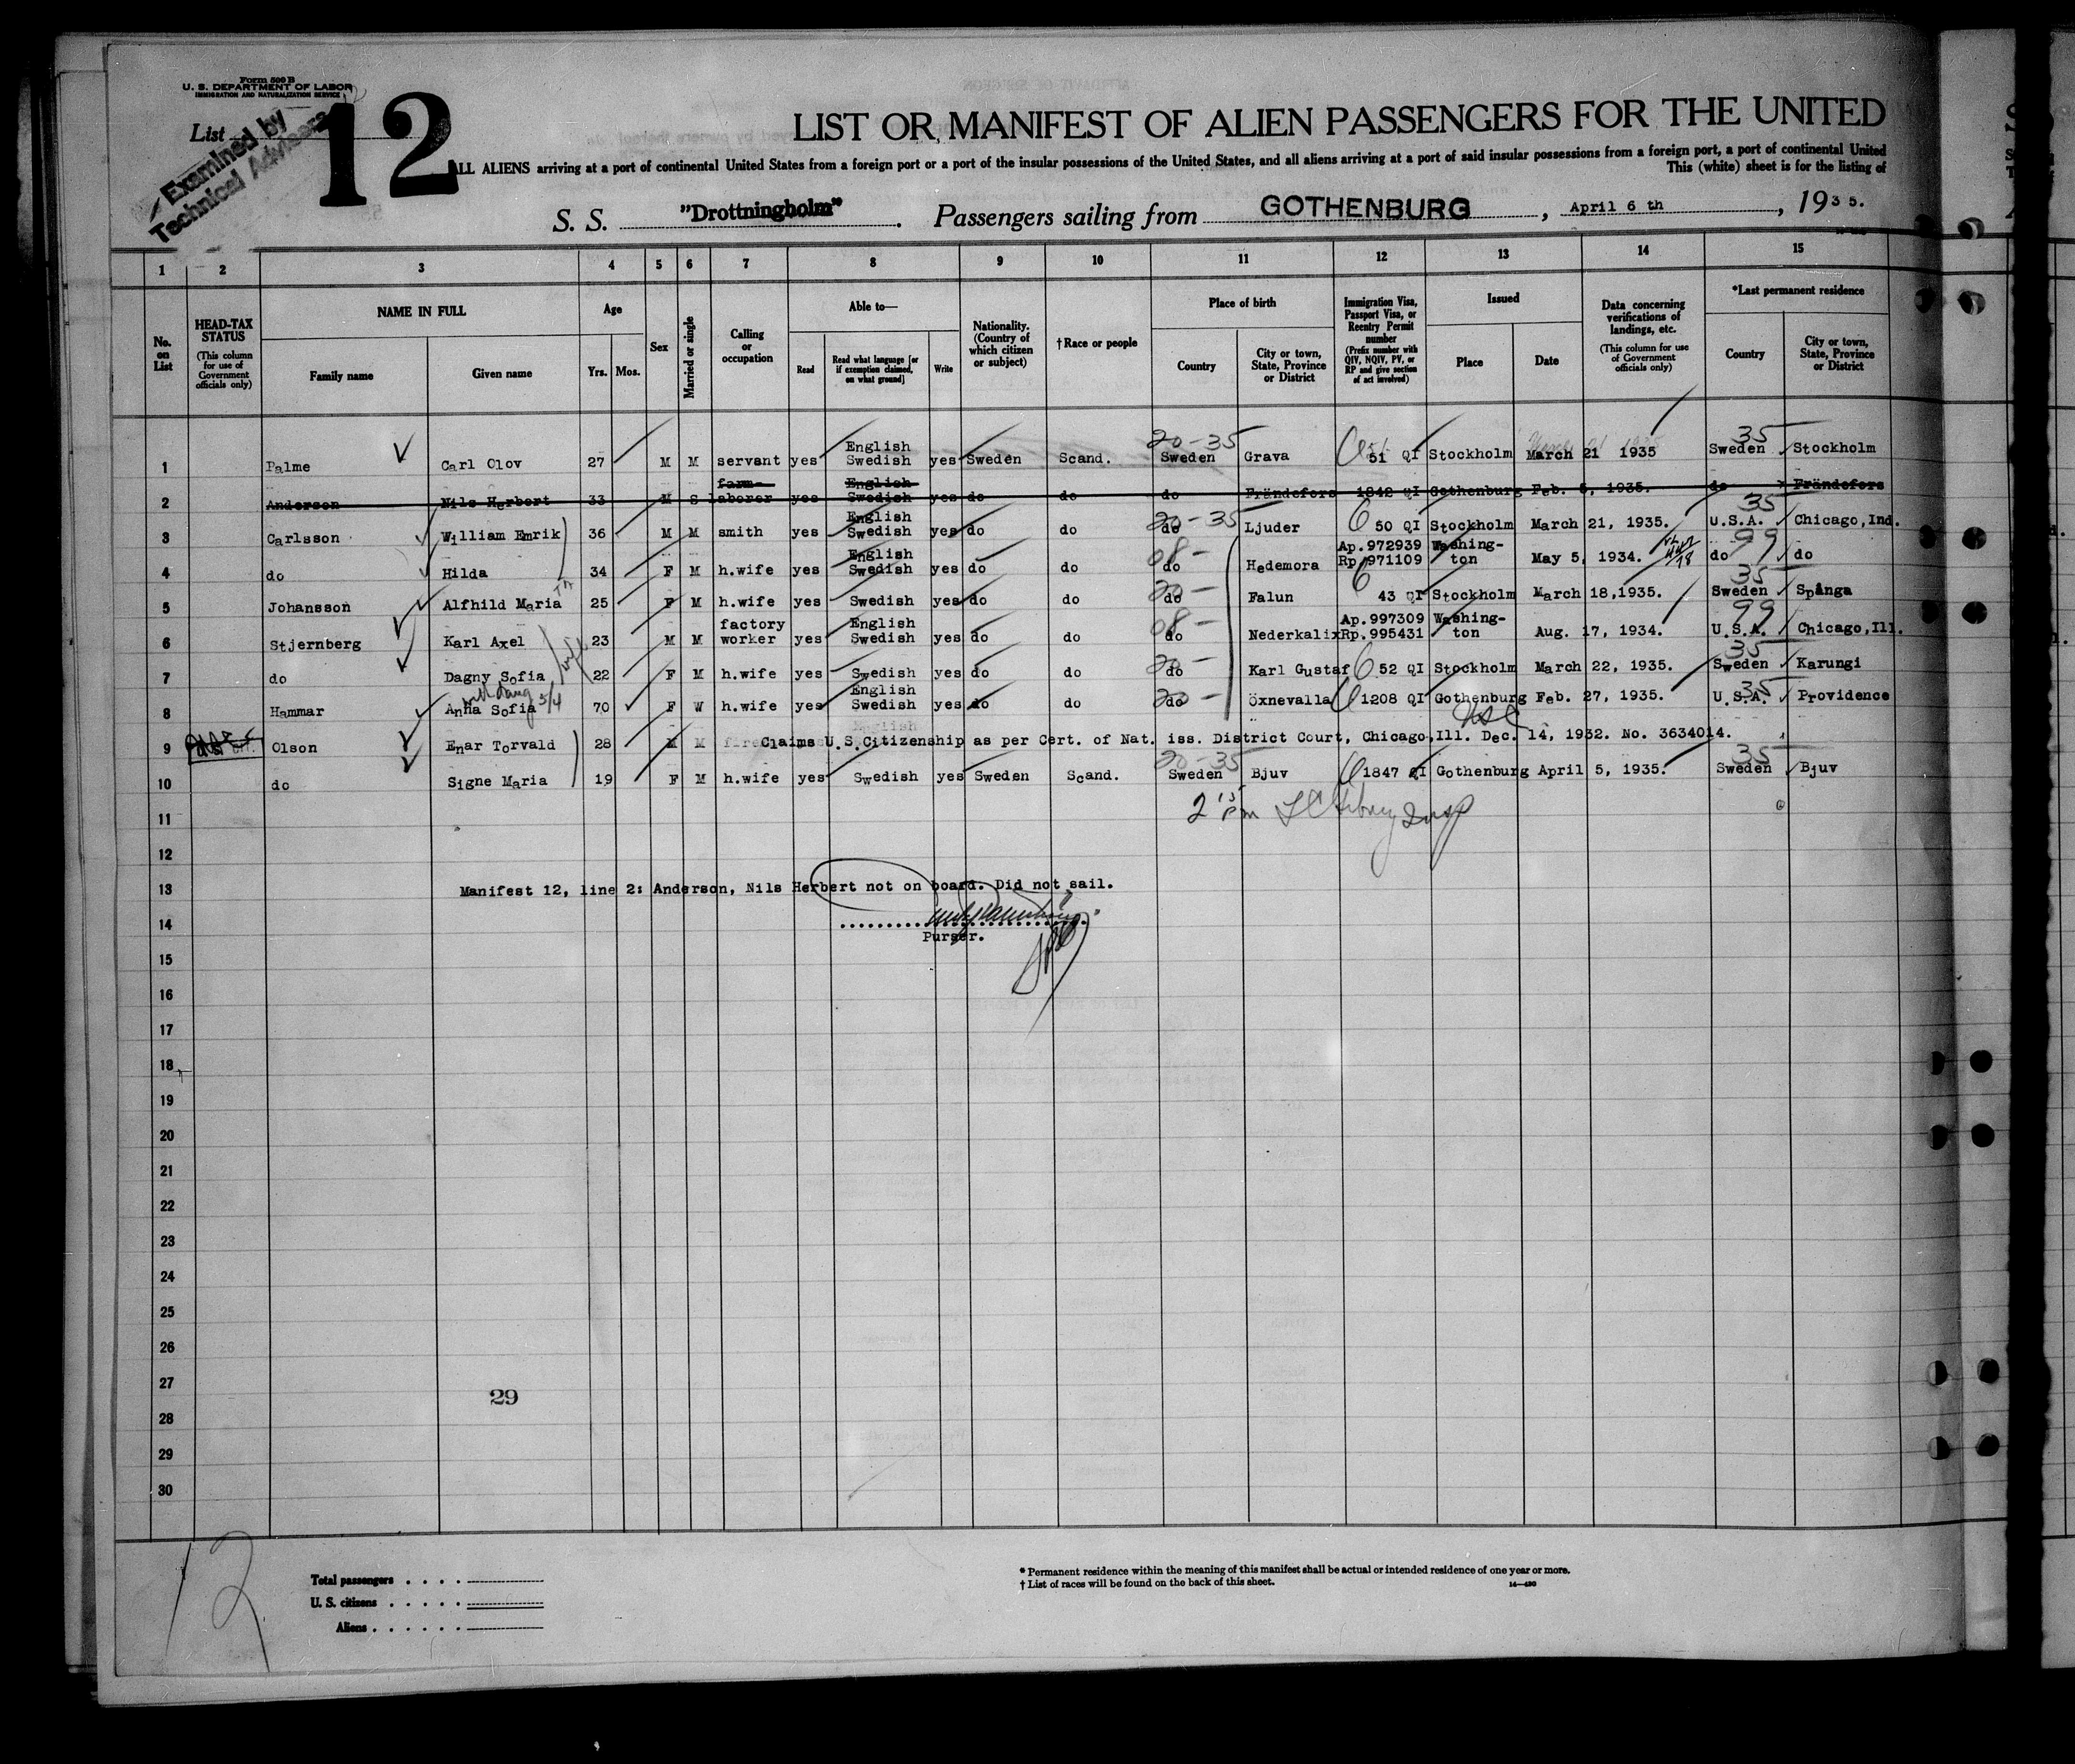 Form 500 B
U. S. DEPARTMENT OF LABOR
IMMIGRATION AND NATURALIZATION SERVICE
List
12
Examined by
Technical Advisers
LIST OR MANIFEST OF ALIEN PASSENGERS FOR THE UNITED
ALL ALIENS arriving at a port of continental United States from a foreign port or a port of the insular possessions of the United States, and all aliens arriving at a port of said insular possessions from a foreign port, a port of continental United
This (white) sheet is for the listing of
S. S. "Drottningholm". Passengers sailing from GOTHENBURG, April 6 th, 1935.
1 2 3 4 5 6 7 8 9 10 11 12 13 14 15
No. on List
HEAD-TAX STATUS (This column for use of Government officials only)
NAME IN FULL Family name Given name
Age Yrs. Mos.
Sex
Married or single
Calling or occupation
Able to— Read Read what language [or if exemption claimed, on what ground] Write
Nationality. (Country of which citizen or subject)
†Race or people
Place of birth Country City or town, State, Province or District
Immigration Visa, Passport Visa, or Reentry Permit number (Prefix number with QIV, NQIV, PV, or RP and give section of act involved)
Issued Place Date
Data concerning verifications of landings, etc. (This column for use of Government officials only)
*Last permanent residence Country City or town, State, Province or District
20-35 35
1 Palme Carl Olov 27 M M servant yes English Swedish yes Sweden Scand. Sweden Grava 51 QI Stockholm March 21 1935 Sweden Stockholm
2 Anderson Nils Herbert 33 M S farm-laborer yes English Swedish yes do do do Frändefors 1842 QI Gothenburg Feb. 5, 1935. do Frändefors
20-35 35
3 Carlsson William Emrik 36 M M smith yes English Swedish yes do do do Ljuder 50 QI Stockholm March 21, 1935. U.S.A. Chicago, Ind.
08- 99
4 do Hilda 34 F M h.wife yes English Swedish yes do do do Hedemora Ap.972939 Rp.971109 Washing-ton May 5, 1934. do do
20- 35
5 Johansson Alfhild Maria 25 F M h.wife yes Swedish yes do do do Falun 43 QI Stockholm March 18,1935. Sweden Spånga
08- 99
6 Stjernberg Karl Axel 23 M M factory worker yes English Swedish yes do do do Nederkalix Ap.997309 Rp.995431 Washing-ton Aug. 17, 1934. U.S.A. Chicago, Ill.
20- 35
7 do Dagny Sofia wife 22 F M h.wife yes Swedish yes do do do Karl Gustaf 52 QI Stockholm March 22, 1935. Sweden Karungi
20- 35
8 Hammar Anna Sofia 70 F W h.wife yes English Swedish yes do do do Öxnevalla 1208 QI Gothenburg Feb. 27, 1935. U.S.A. Providence
USC
9 Olson Enar Torvald 28 M M Claims U.S.Citizenship as per Cert. of Nat. iss. District Court, Chicago,Ill. Dec. 14, 1932. No. 3634014.
20-35 35
10 do Signe Maria 19 F M h.wife yes Swedish yes Sweden Scand. Sweden Bjuv 1847 QI Gothenburg April 5, 1935. Sweden Bjuv
11 2 15 Pm Insp
12
13 Manifest 12, line 2: Anderson, Nils Herbert not on board. Did not sail.
14
Purser.
15
16
17
18
19
20
21
22
23
24
25
26
27
29
28
29
30
12
Total passengers
U. S. citizens
Aliens
* Permanent residence within the meaning of this manifest shall be actual or intended residence of one year or more.
† List of races will be found on the back of this sheet.
14—430